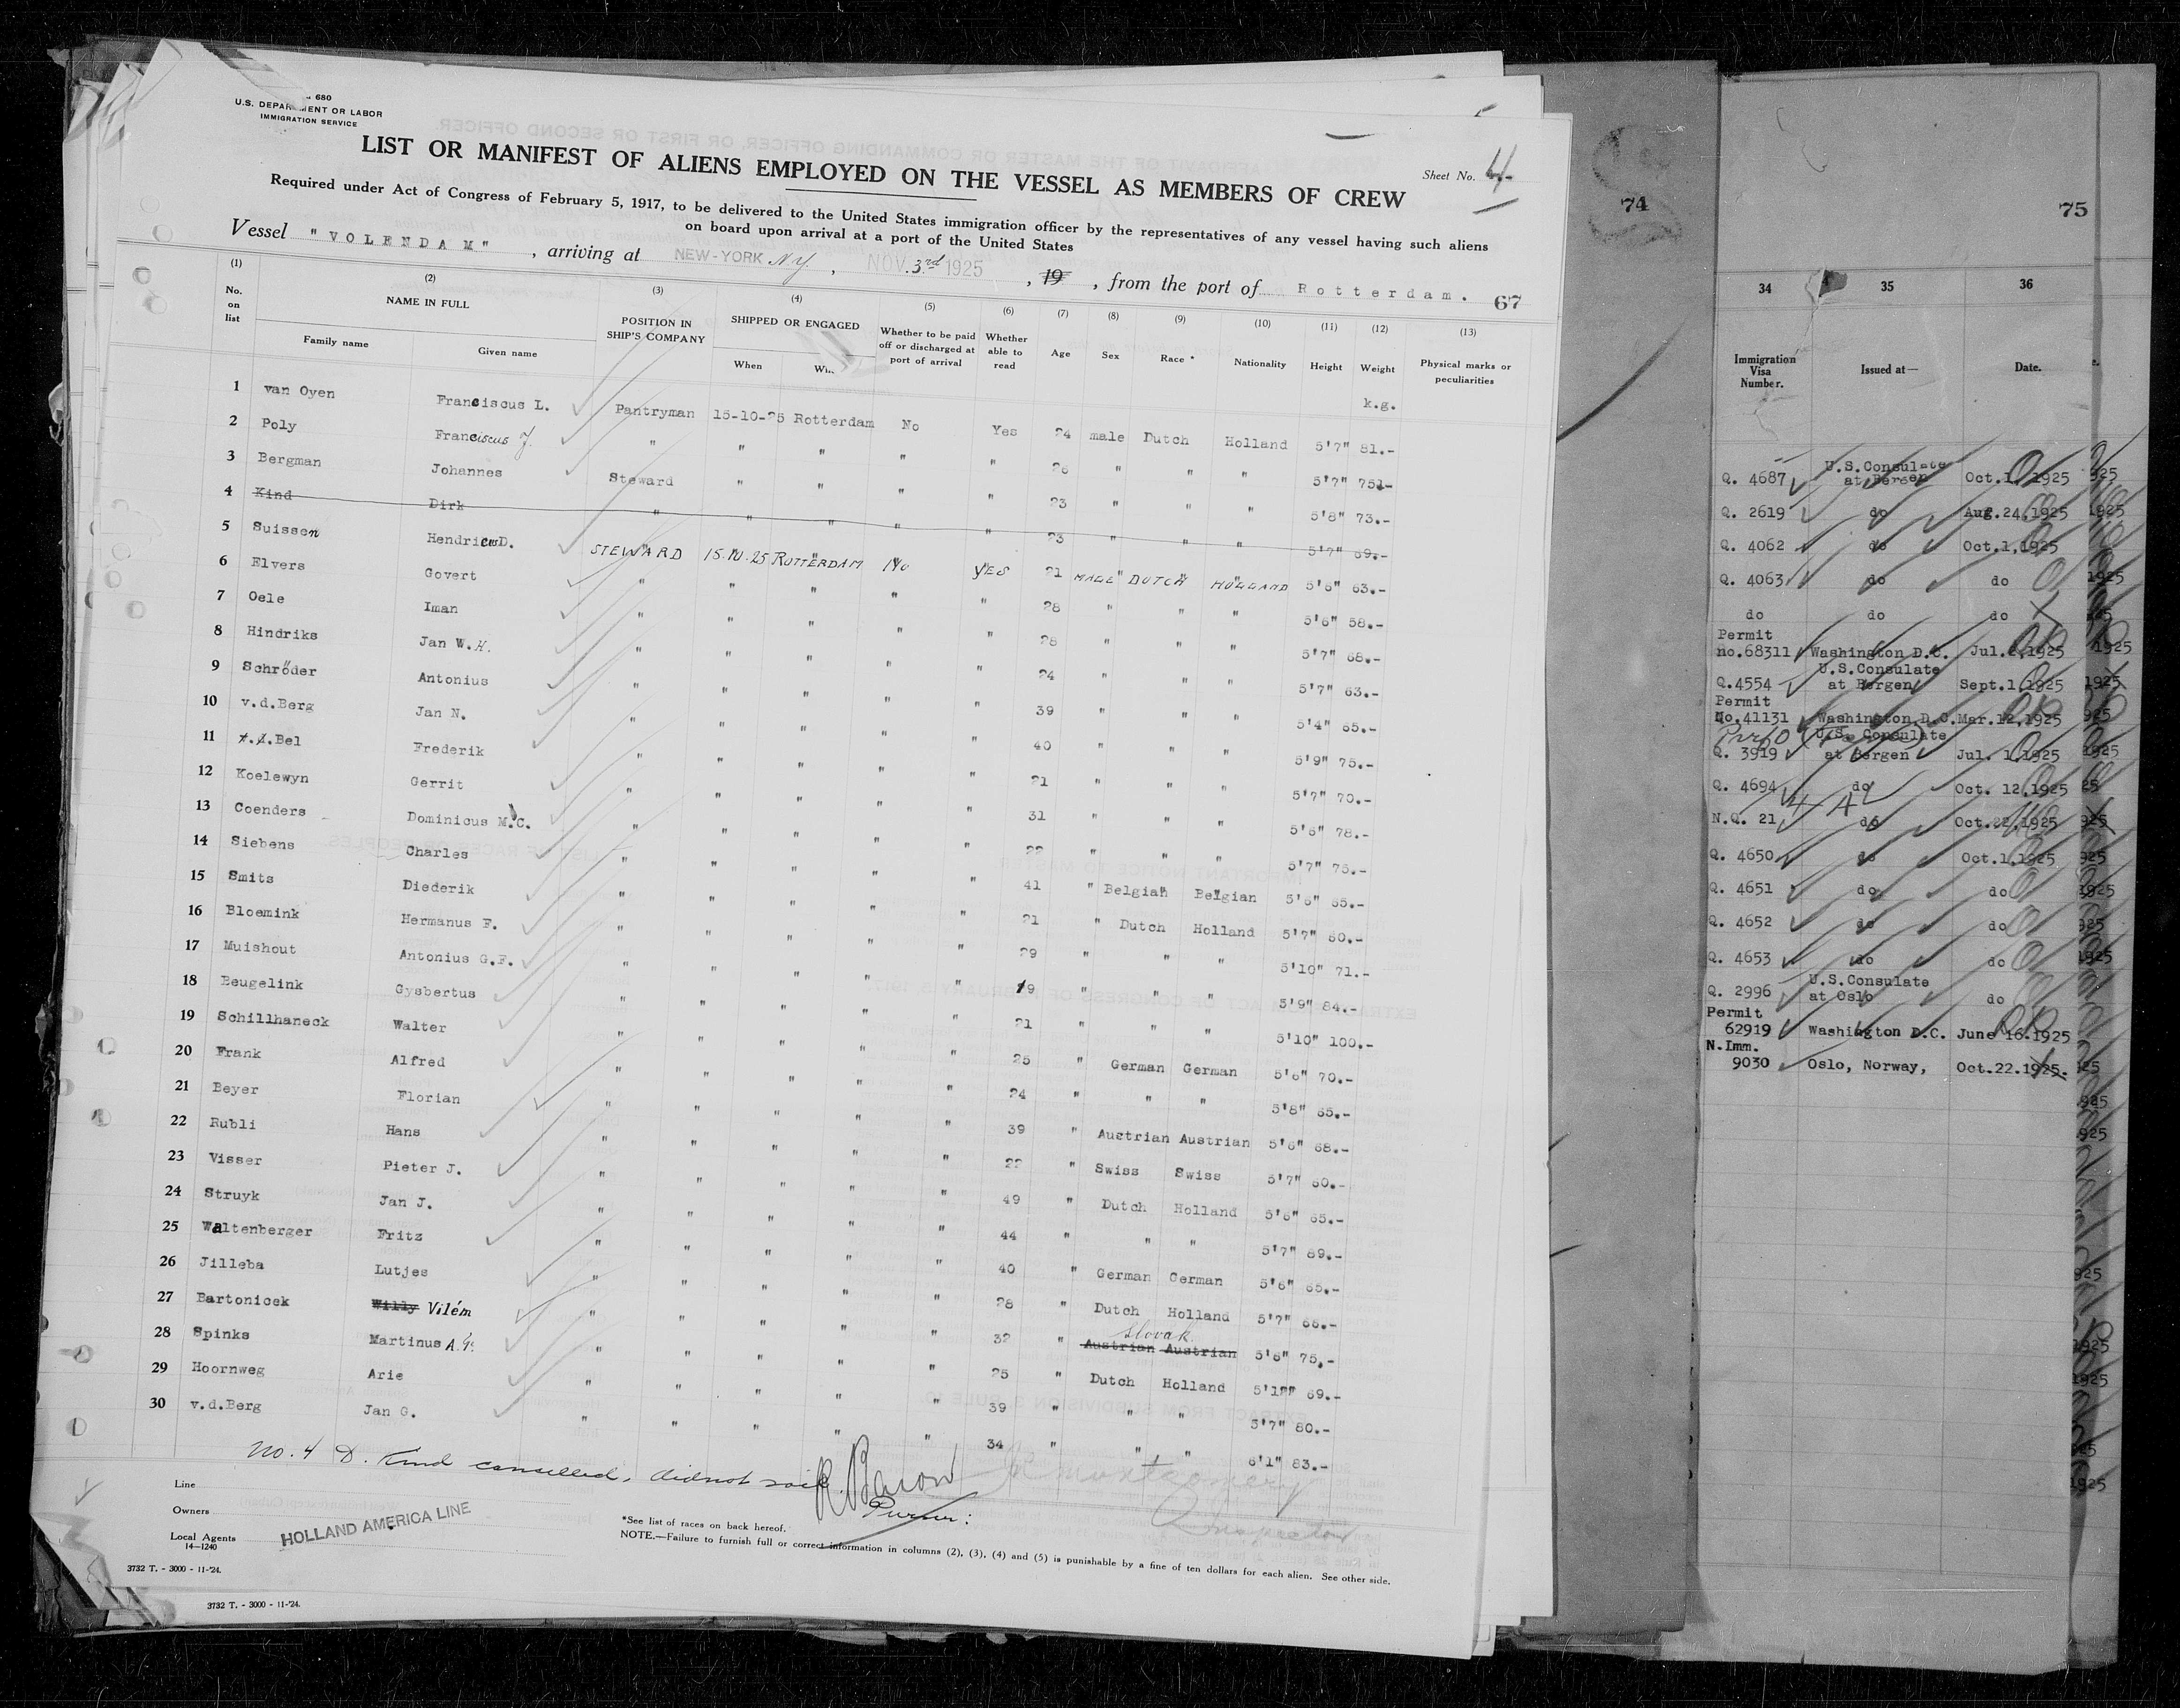 680
U.S. DEPARTMENT OR LABOR
IMMIGRATION SERVICE
LIST OR MANIFEST OF ALIENS EMPLOYED ON THE VESSEL AS MEMBERS OF CREW
Sheet No. 4.-
Required under Act of Congress of February 5, 1917, to be delivered to the United States immigration officer by the representatives of any vessel having such aliens
on board upon arrival at a port of the United States
Vessel "VOLENDAM" , arriving at NEW-YORK N.Y. , NOV. 3rd 1925 , 19 , from the port of Rotterdam. 67
(1) (2) (3) (4) (5) (6) (7) (8) (9) (10) (11) (12) (13)
No. on list NAME IN FULL Family name Given name POSITION IN SHIP'S COMPANY SHIPPED OR ENGAGED When Whether to be paid off or discharged at port of arrival Whether able to read Age Sex Race * Nationality Height Weight Physical marks or peculiarities
k.g.
1 van Oyen Franciscus L. Pantryman 15-10-25 Rotterdam No Yes 24 male Dutch Holland 5'7" 81.-
2 Poly Franciscus J. " " " " " 28 " " " 5'7" 75.-
3 Bergman Johannes Steward " " " " 23 " " " 5'8" 73.-
4 Kind Dirk " " " " " 23 " " " 5'7" 69.-
5 Suissen Hendricus D. STEWARD 15.10.25 ROTTERDAM No YES 21 MALE DUTCH HOLLAND 5'6" 63.-
6 Elvers Govert " " " " " 28 " " " 5'6" 58.-
7 Oele Iman " " " " " 28 " " " 5'7" 68.-
8 Hindriks Jan W.H. " " " " " 24 " " " 5'7" 63.-
9 Schröder Antonius " " " " " 39 " " " 5'4" 65.-
10 v.d.Berg Jan N. " " " " " 40 " " " 5'9" 75.-
11 Bel Frederik " " " " " 21 " " " 5'7" 70.-
12 Koelewyn Gerrit " " " " " 31 " " " 5'6" 78.-
13 Coenders Dominicus M.C. " " " " " 22 " " " 5'7" 75.-
14 Siebens Charles " " " " " 41 " Belgian Belgian 5'6" 65.-
15 Smits Diederik " " " " " 21 " Dutch Holland 5'7" 60.-
16 Bloemink Hermanus F. " " " " " 29 " " " 5'10" 71.-
17 Muishout Antonius G.F. " " " " " 19 " " " 5'9" 84.-
18 Beugelink Gysbertus " " " " " 21 " " " 5'10" 100.-
19 Schillhaneck Walter " " " " " 25 " German German 5'6" 70.-
20 Frank Alfred " " " " " 24 " " " 5'8" 65.-
21 Beyer Florian " " " " " 39 " Austrian Austrian 5'6" 68.-
22 Rubli Hans " " " " " 22 " Swiss Swiss 5'7" 60.-
23 Visser Pieter J. " " " " " 49 " Dutch Holland 5'6" 65.-
24 Struyk Jan J. " " " " " 44 " " " 5'7" 89.-
25 Waltenberger Fritz " " " " " 40 " German German 5'6" 65.-
26 Jilleba Lutjes " " " " " 28 " Dutch Holland 5'7" 66.-
Slovak
27 Bartonicek Willy Vilém " " " " " 32 " Austrian Austrian 5'6" 75.-
28 Spinks Martinus A.G. " " " " " 25 " Dutch Holland 69.-
29 Hoornweg Arie " " " " " 39 " " " 5'7" 80.-
30 v.d.Berg Jan G. " " " " " 34 " " " 6'1" 83.-
No. 4 D. Kind cancelled, did not sail.
R. Baron
Purser:
Montgomery
Inspector
Line
Owners
Local Agents
HOLLAND AMERICA LINE
14—1240
*See list of races on back hereof.
NOTE.—Failure to furnish full or correct information in columns (2), (3), (4) and (5) is punishable by a fine of ten dollars for each alien. See other side.
3732 T. - 3000 - 11-'24.
3732 T. - 3000 - 11-'24.
74
75
34 35 36
Immigration Visa Number. Issued at— Date.
Q. 4687 U.S.Consulate at Bergen Oct.1, 1925
Q. 2619 do Aug.24,1925
Q. 4062 do Oct.1,1925
Q. 4063 do do
do do do
Permit
no.68311 Washington D.C. 1925
Q.4554 U.S.Consulate at Bergen Sept.1,1925
Permit
No.41131 Washington,D.C. Mar.12,1925
Q. 3919 U.S. Consulate at Bergen Jul. 1,1925
Q. 4694 do Oct. 12,1925
N.Q. 21 do Oct.22,1925
Q. 4650 do Oct.1,1925
Q. 4651 do do
Q. 4652 do do
Q. 4653 do do
Q. 2996 U.S.Consulate at Oslo do
Permit
62919 Washington D.C. June 16.1925
N.Imm.
9030 Oslo, Norway, Oct.22.1925.